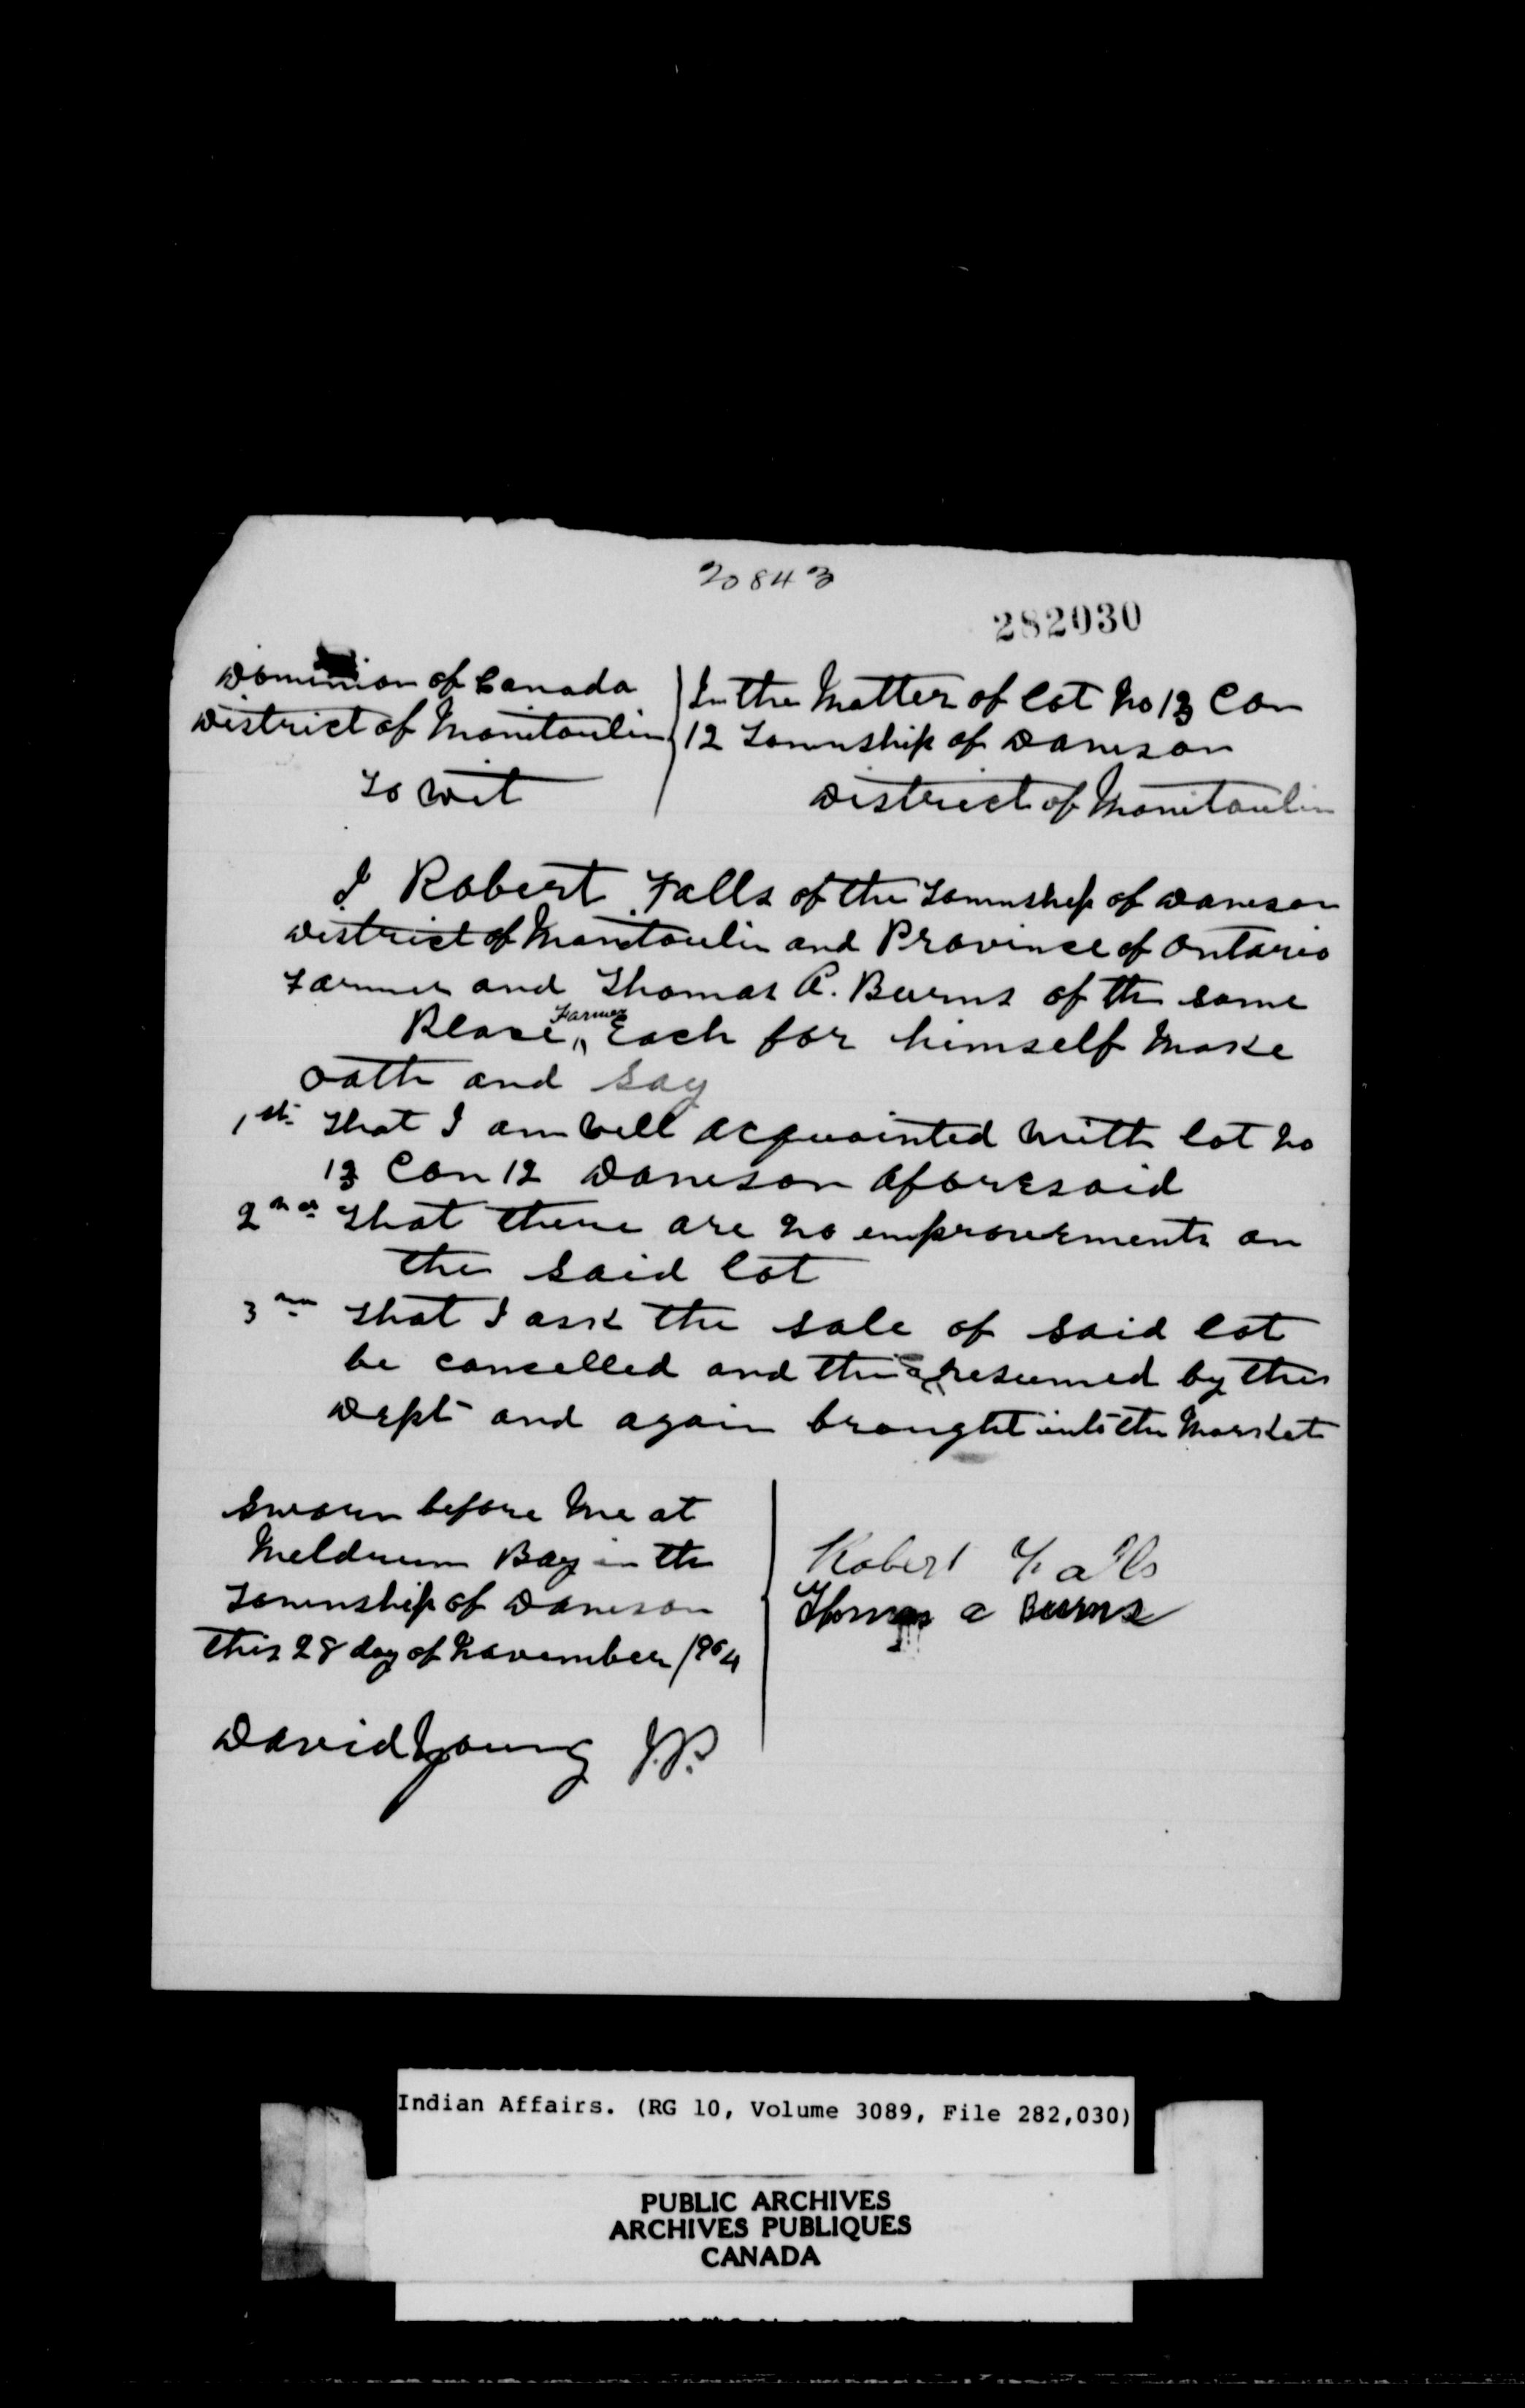 20843
282030
Dominion of Canada
District of Manitoulin
To wit
In the Matter of lot No 13 Con
12 Township of Dawson
District of Manitoulin
I Robert Falls of the Township of Dawson
District of Manitoulin and Province of Ontario
Farmer and Thomas A. Burns of the same
Place, Farmer Each for himself Make
oath and say
1st That I am well acquainted with lot No
13 Con 12 Dawson aforesaid
2nd That there are no improvements on
the said lot
3rd That I ask the sale of said lot
be cancelled and the resumed by the
Dept and again brought into the Market
Sworn before Me at
Meldrum Bay in the
Township of Dawson
this 28 day of November 1904
Robert Falls
Thomas a Burns
David Young J.P.
Indian Affairs. (RG 10, Volume 3089, File 282,030)
PUBLIC ARCHIVES
ARCHIVES PUBLIQUES
CANADA